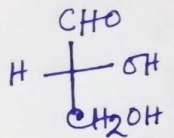 CHO
H OH
CH2OH